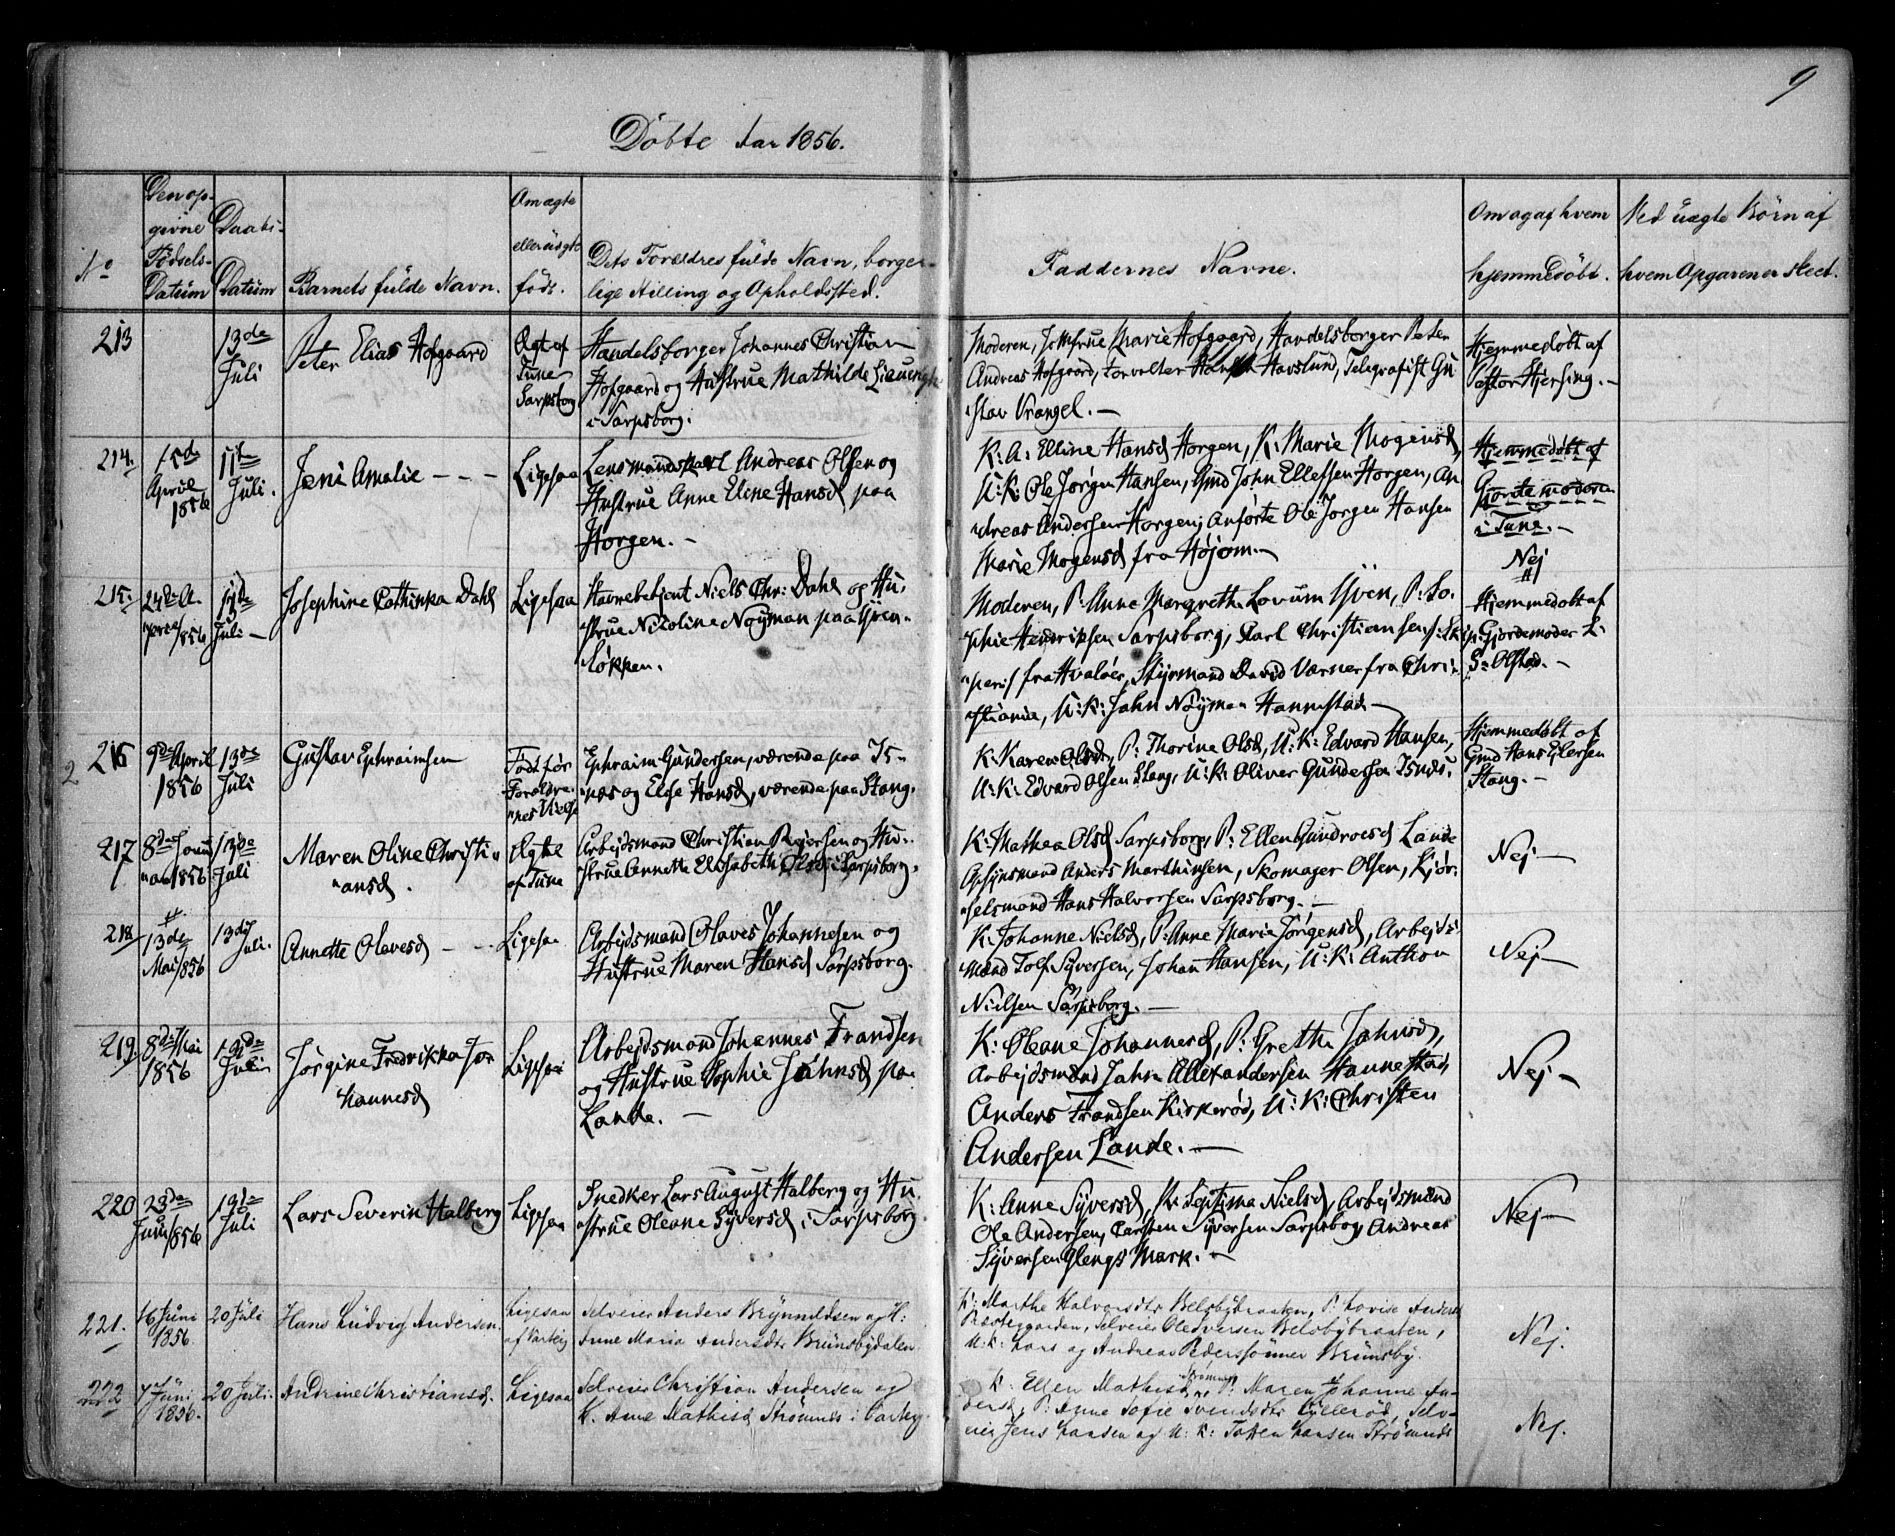 9
Döbte Aar 1856.
No
Den op-
givne
Födsels-
Datum
Daabs-
Datum
Barnets fulde Navn.
Om ægte
eller uægte
födt.
Dets Forældres fulde Navn, borger-
lige Stilling og Opholdssted.
Faddernes Navne.
Om og af hvem
hjemmedöbt.
Ved uægte Börn af
hvem Opgaven er skeet.
213
13de
Juli
Peter Elias Hofgaard
Ægte af
Tune
Sarpsborg
Handelsborger Johannes Christian
Hofgaard og Hustrue Mathilde
i Sarpsborg.
Moderen, Jomfrue Marie Hofgaard, Handelsborger Peter
Andreas Hofgaard, Forvalter Havslund, Telegrafist Gu
stav Vrangel. —
Hjemmedøbt af
Pastor Hjersing. —
214.
15de
April
1856
Juli.
Jeni Amalie - - -
Ligesaa
Lensmandskarl Andreas Olsen og
Hustrue Anne Eline Hansd paa
Horgen. —
K: A: Elline Hansd Horgen, K: Marie Mogensd,
U: K: Ole Jørgen Hansen, Gmd John Ellefsen Horgen, An
dreas Andersen Horgen; anførte Ole Jørgen Hansen
Marie Mogensd fra Højom. —
Hjemmedøbt af
Gjordemoderen
i Tune. —
Nej
215.
24de A-
pril 1856
Juli —
Josephine Cathinka Dahl
Ligesaa
Havnebetjent Niels Chr: Dahl og Hu,
strue Nicoline Nøyman paa Yven-
løkken.
Moderen, P: Anne Margrethe Lovum Yven, P: So-
phie Hendriksen Sarpsborg, Karl Christiansen
fra Hvaløer, Styrmand David Værner fra Chri-
stiania, U: K: Jahn Nøyman Hannestad —
Hjemmedøbt af
Gjordemoder L:
S: Olstad. —
2
216
9de April
1856
13de
Juli
Gustav Ephraimsen
Født før
Forældre-
nes
Ephraim Gundersen, værende paa Is-
næs og Else Hansd, værende paa Stang.
K: Karen Olsd, P: Thorine Olsd, U: K: Edvard Hansen,
U: K: Edvard Olsen Stang, U: K: Oliver Gundersen
Hjemmedøbt af
Gmd Hans Ellersen
Stang. —
217
8de Janu
ar 1856
13de
Juli
Maren Oline Christi-
ansd.
Ægte
af Tune
Arbejdsmand Christian Rejersen og Hu-
strue Annette Elisabeth Olsd i Sarpsborg.
K: Mathea Olsd Sarpsborg, P: Ellen Gundroesd Lande
Opsynsmand Anders Marthinsen, Skomager Olsen, Kjör-
selsmand Hans Halvorsen Sarpsborg. —
Nej —
218
13de
Mai 1856
13de
Juli.
Annette Olavesd - -
Ligesaa
Arbejdsmand Olaves Johannesen og
Hustrue Maren Hansd Sarpsborg.
K: Johanne Nielsd, P: Anne Marie Jörgensd, Arbejds-
mand Tolf Syversen, Johan Hansen, U: K: Anthon
Nielsen Sarpsborg. —
Nej —
219.
8de Mai
1856
13de
Juli
Jørgine Fredrikka Jo-
hannesd
Ligesaa
Arbejdsmand Johannes Frandsen
og Hustrue Sophie Jahnsd paa
Lande. —
K: Oleane Johannesd, P: Grethe Jahnsd,
Arbejdsmand Jahn Allexandersen Hannestad,
Anders Frandsen Kirkerød, U: K: Christen
Andersen Lande. —
Nej —
220
23de
Juni 1856
13de
Juli
Lars Severin Halberg
Ligesaa
Snedker Lars August Halberg og Hu-
strue Oleane Syversd i Sarpsborg.
K: Anne Syversd, P: Septima Nielsd, Arbejdsmand
Ole Andersen, Carsten Syversen Sarpsborg, Andreas
Syversen Glengs Mark. —
Nej —
221.
16 Juni
1856.
20 Juli
Hans Ludvig Andersen.
Ligesaa
af Varteig
Selveier Anders Brynnildsen og H:
Anne Maria Andersdtr Brunsbydalen
K: Marthe Halvorsdtr Belsbybraaten, P: Lovise Anders
Præstegaarden, Selveier Ole Iversen Belsbybraaten,
U: K: Lars og Andreas Pederssønner Brunsby.
Nej.
222
7 Juni
1856.
20 Juli.
Andrine Christiansd.
Ligesaa
Selveier Christian Andersen og
K. Anne Mathisd Strömnæs i Varteig.
K: Ellen Mathisd Strömnæs P: Maren Johanne An-
dersd, P: Anne Sofie Svendsdtr Hyllerød, Selv-
eier Jens Hansen og U: K: Hansen Strömnæs
Nej.